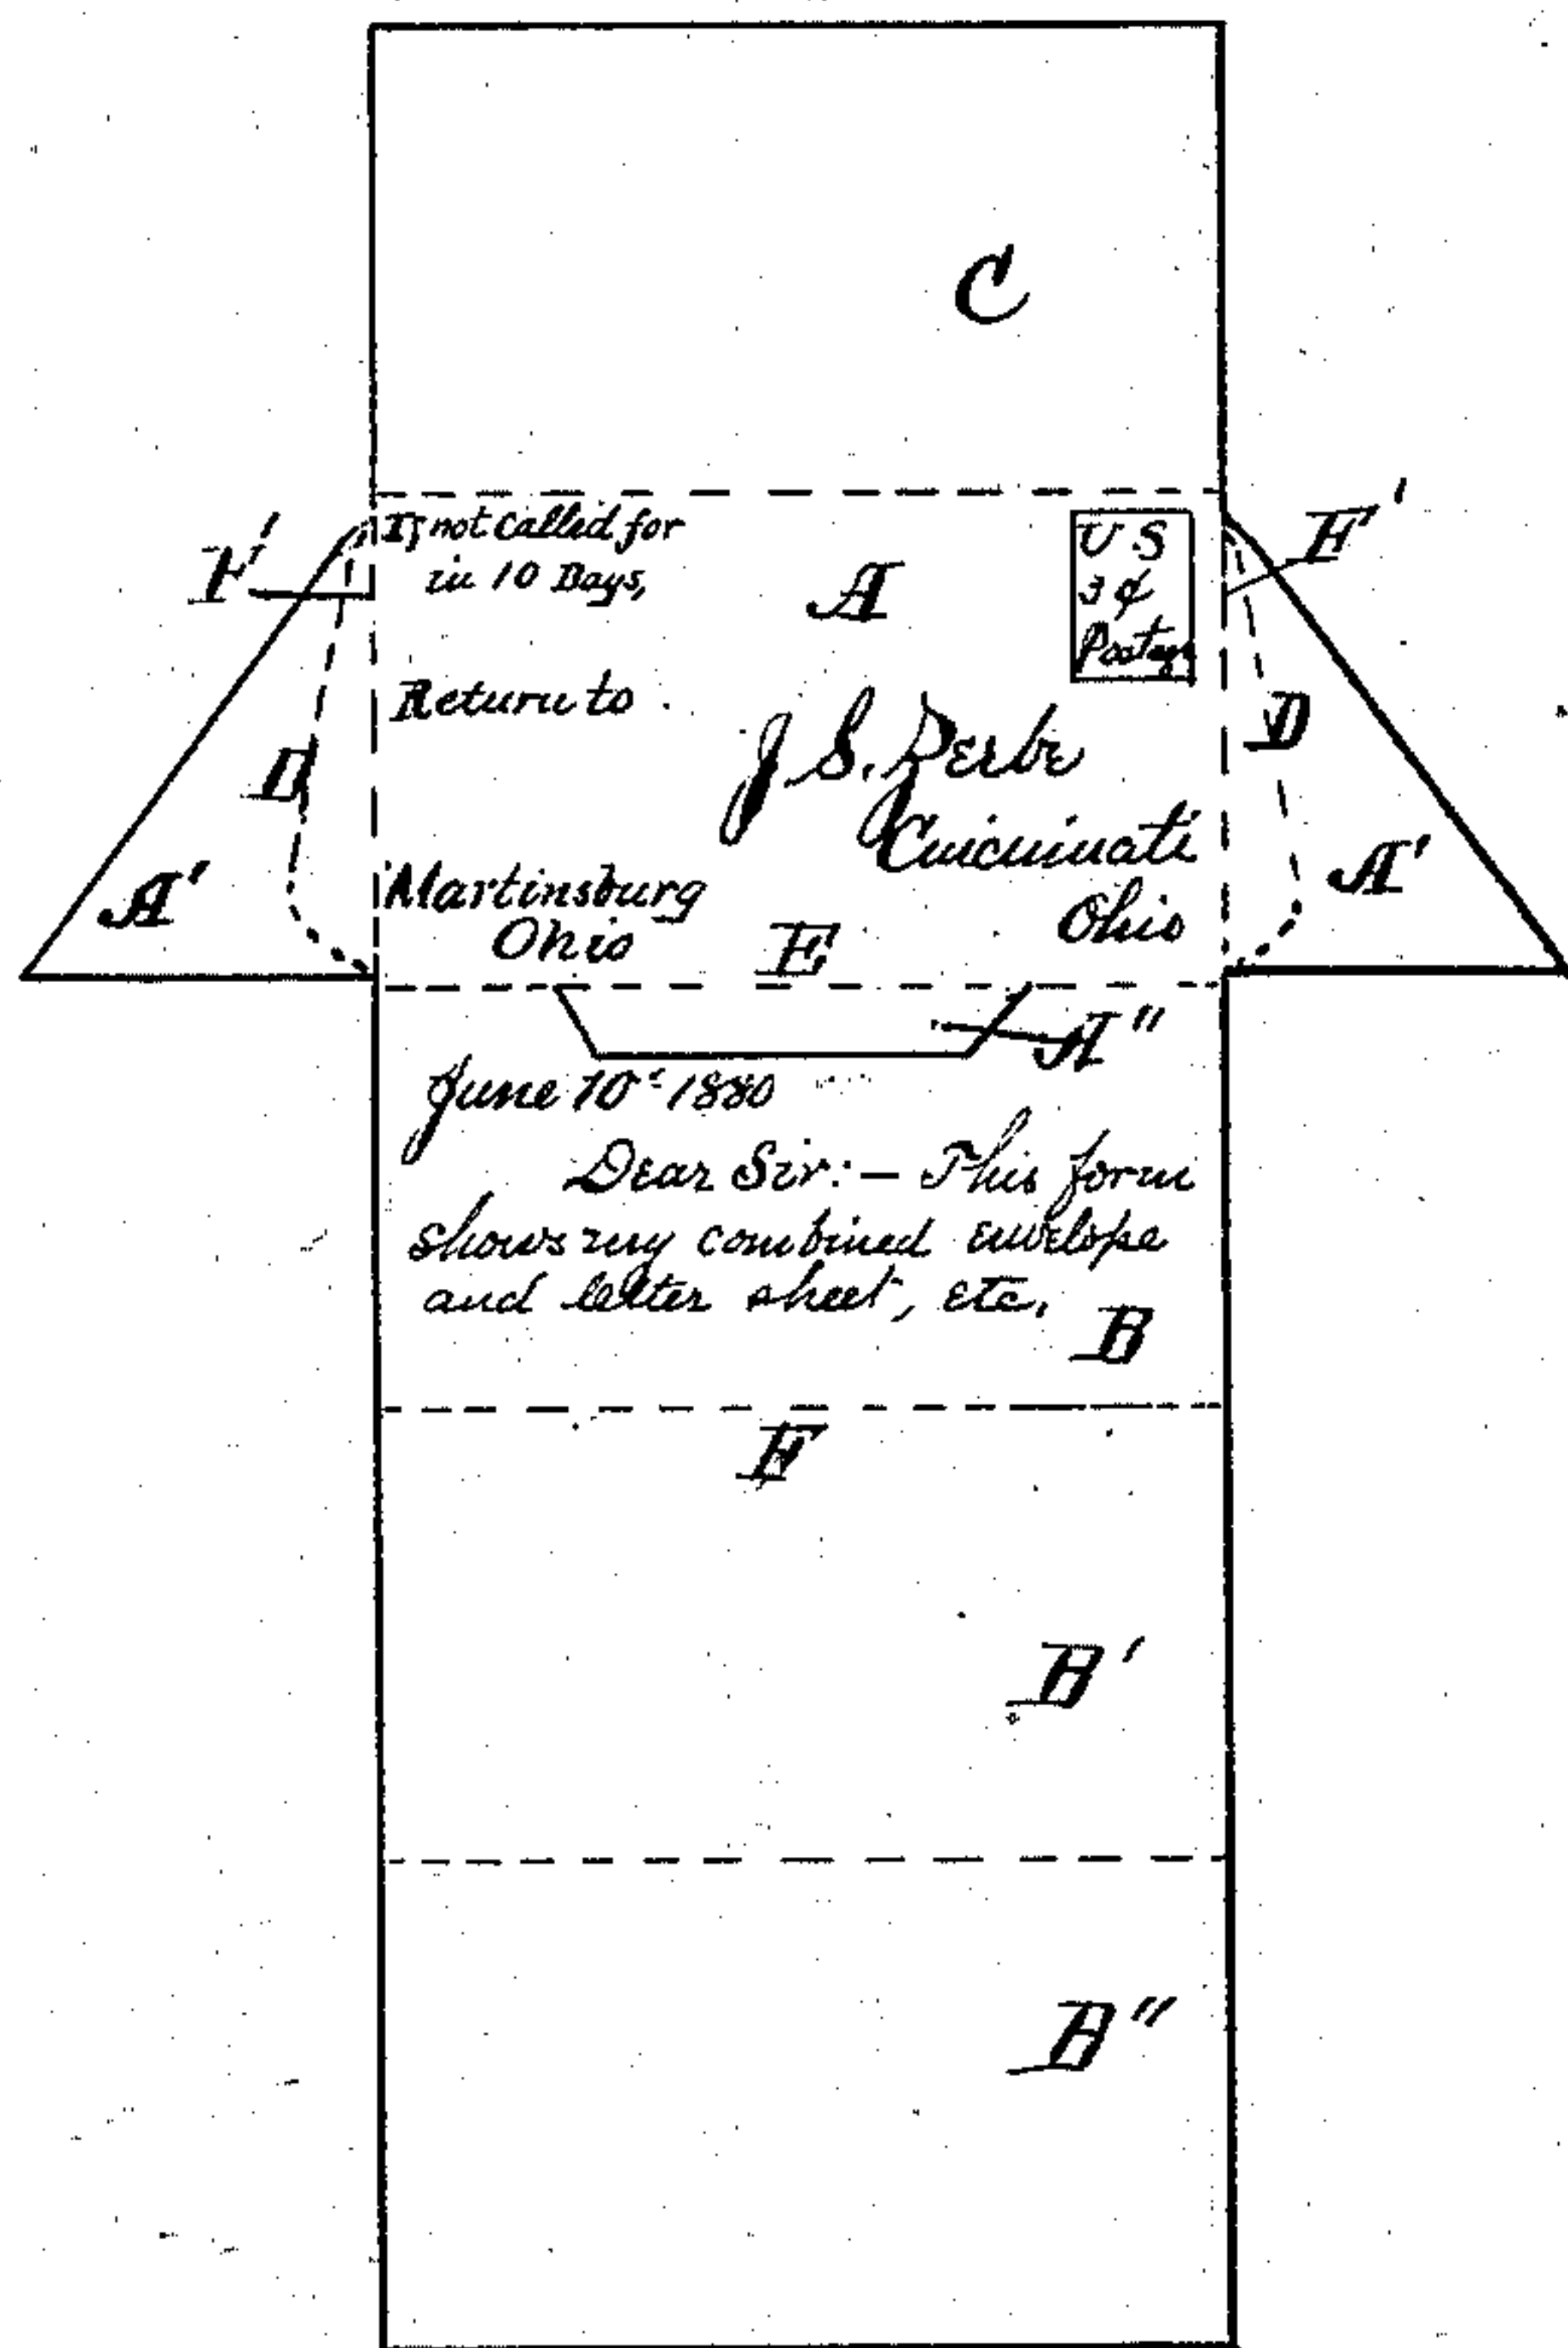 C
If not called for
in 10 Days,
A
U S
3 ¢
F'
F'
Return to
D
D
J. S. Zerbe
Cincinnati
Ohio
A'
A'
Martinsburg
Ohio
E
A"
June 10th 1880
Dear Sir:— This form
shows my combined envelope
and letter sheet, etc.
B
F
B'
B"